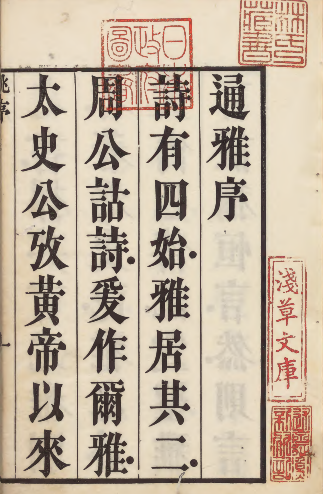 通雅序
詩有四始雅居其二
周公詁詩爰作爾雅
太史公攷黃帝以來
日本
政府
圖書
淺草文庫